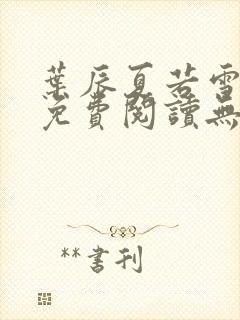 葉辰夏若雪
免費閱讀無
**書刊